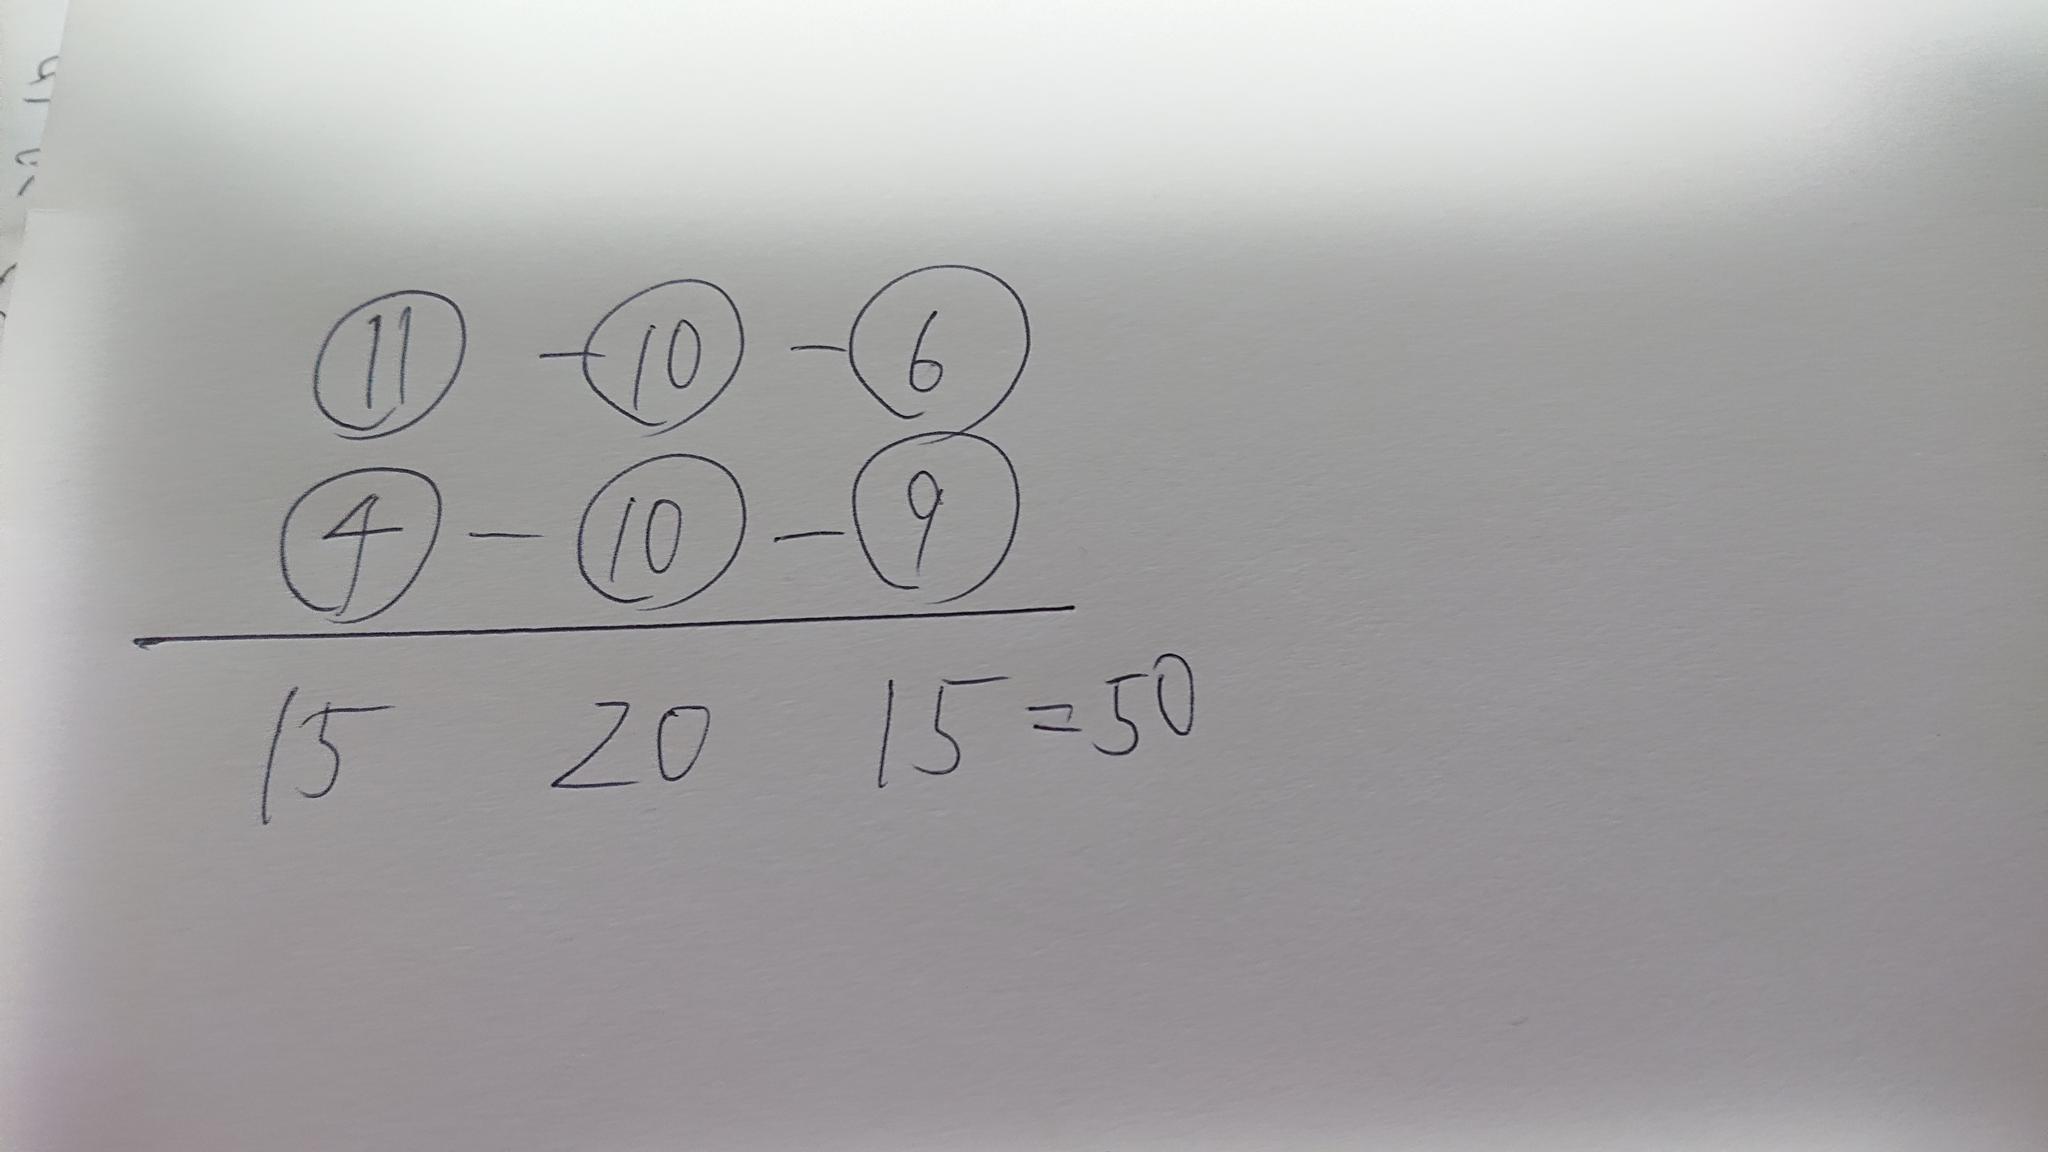 11 - 10 - 6
4 - 10 - 9
15 20 15 = 50